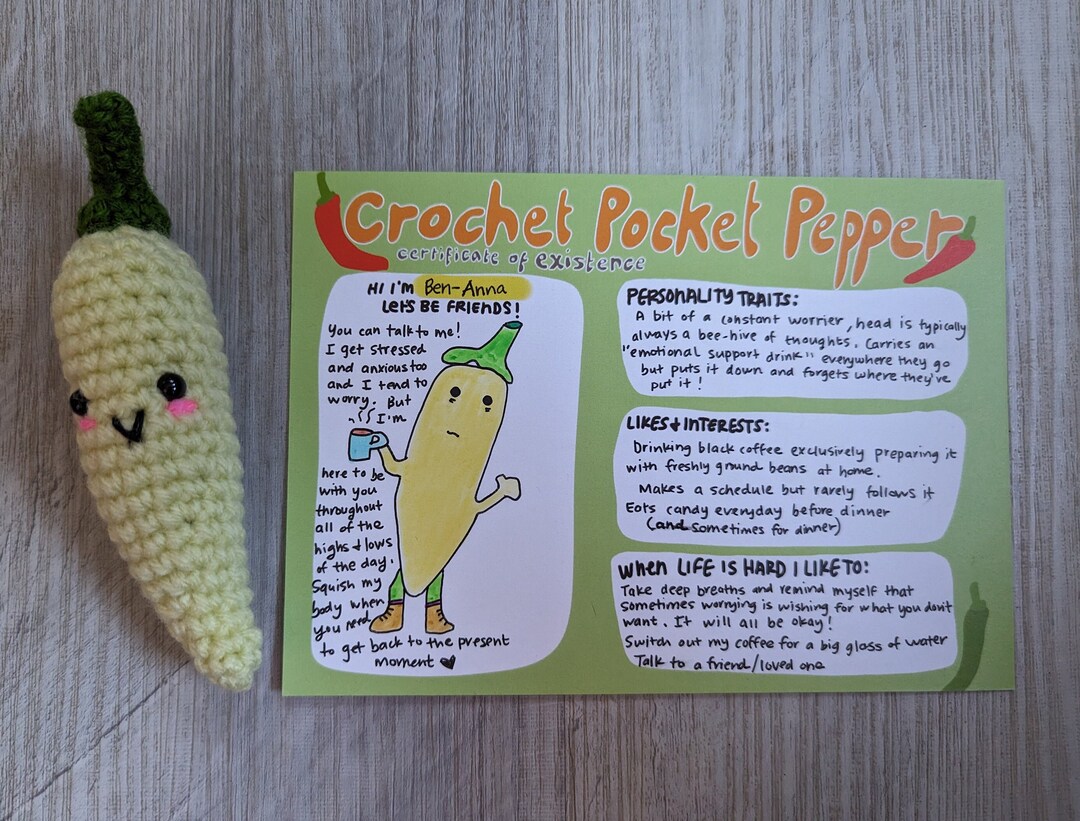 Crochet Pocket Pepper
certificate of existence
HI I'M Ben-Anna
LET'S BE FRIENDS!
You can talk to me!
I get stressed
and anxious too
and I tend to
worry. But
I'm
here to be
with you
throughout
all of the
highs + lows
of the day.
Squish my
body when
you need
to get back to the present
moment ♥
PERSONALITY TRAITS:
A bit of a constant worrier, head is typically
always a bee-hive of thoughts. Carries an
"emotional support drink" everywhere they go
but puts it down and forgets where they've
put it!
LIKES + INTERESTS:
Drinking black coffee exclusively preparing it
with freshly ground beans at home.
Makes a schedule but rarely follows it
Eats candy everyday before dinner
(and sometimes for dinner)
When LIFE IS HARD I LIKE TO:
Take deep breaths and remind myself that
sometimes worrying is wishing for what you don't
want. It will all be okay!
Switch out my coffee for a big glass of water
Talk to a friend/loved one